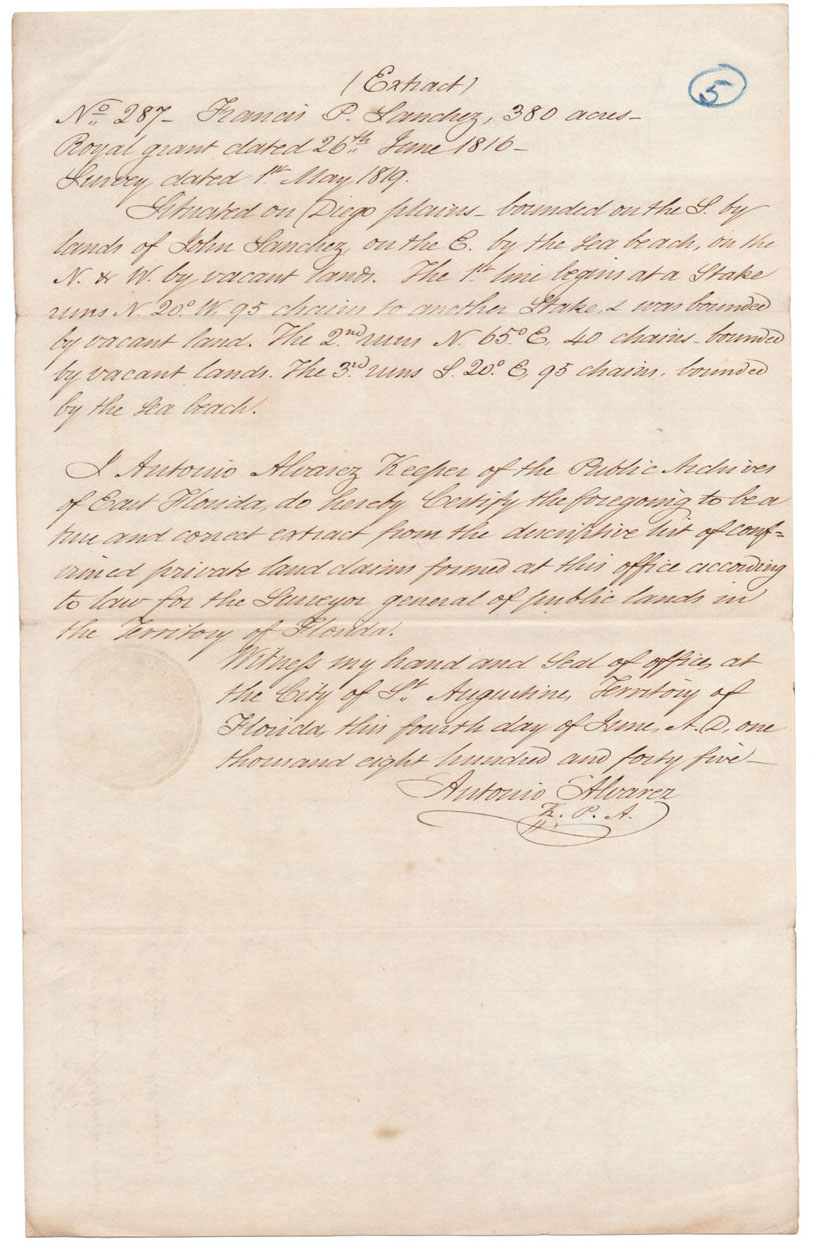 (Extract)
5
No. 287 - Francis P. Sanchez, 380 acres -
Royal grant dated 26th June 1816 -
Survey dated 1st May 1819.
Situated on Diego plains - bounded on the S. by
lands of John Sanchez, on the E. by the sea beach, on the
N. & W. by vacant lands. The 1st line begins at a Stake
runs N. 20° W. 95 chains to another Stake, & was bounded
by vacant land. The 2nd runs N. 65° E, 40 chains - bounded
by vacant lands. The 3rd runs S. 20° E, 95 chains, bounded
by the sea beach.
I Antonio Alvarez Keeper of the Public Archives
of East Florida, do hereby Certify the foregoing to be a
true and correct extract from the descriptive list of conf=
irmed private land claims formed at this office according
to law for the Surveyor general of public lands in
the Territory of Florida.
Witness my hand and Seal of office, at
the City of St. Augustine, Territory of
Florida, this fourth day of June, A. D, one
thousand eight hundred and forty five -
Antonio Alvarez
K. P. A.